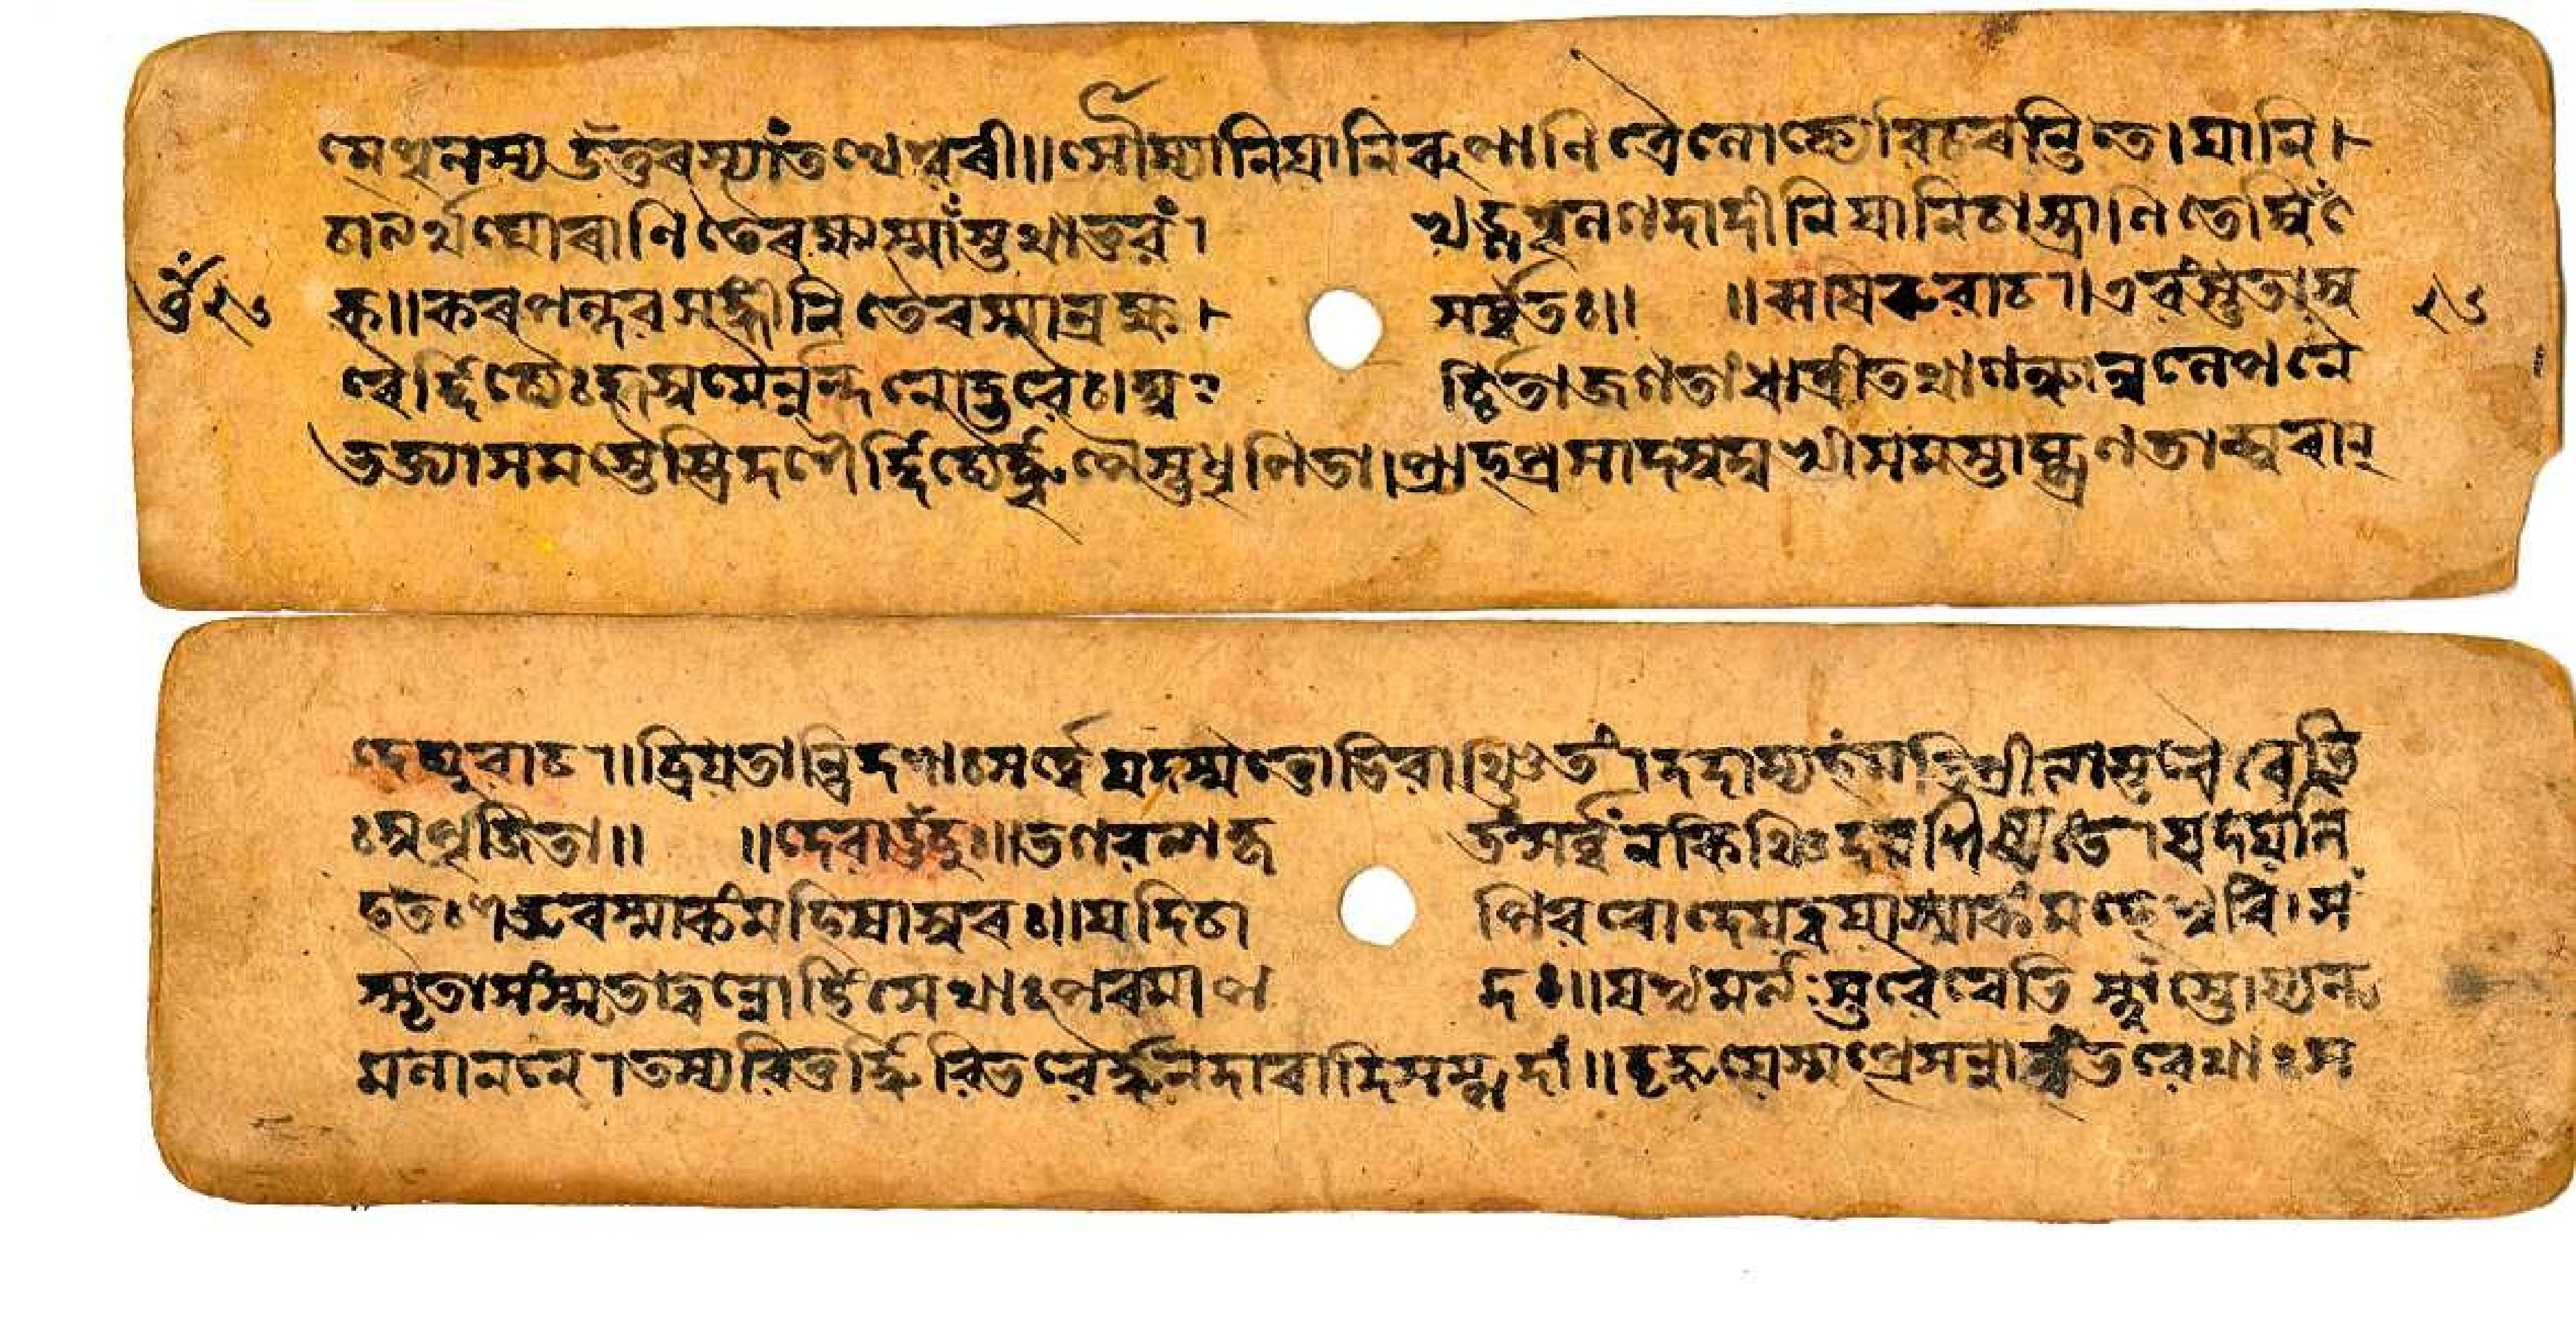 ত্মশূলস্য উত্তৰস্যাং তথেশ্বৰী॥সৌম্যানি যানি ৰূপাণি ত্রৈলোক্যে বিচৰন্তি তে।যানি
চাত্যর্থঘোৰাণি তৈ ৰক্ষাস্মাংস্তথা ভুবং। খড্গশূলগদাদীনি যানি চাস্ত্রাণি তেম্বি
কে॥কৰপল্লবসঙ্গীনি তৈৰস্মান্ৰক্ষ সর্ব্বতঃ॥ ॥ঋষিৰুবাচ॥এবং স্তুতা সু
ৰৈর্দ্দিব্যৈঃ কুসুমৈর্নন্দনোদ্ভবৈঃ।অর্চ্চিতা জগতাং ধাত্রী তথা গন্ধানুলেপনৈ
ভক্ত্যা সমস্তৈস্ত্রিদশৈর্দ্দিব্যৈর্দ্ধূপৈস্তু ধূপিতা।প্রাহ প্রসাদসুমুখী সমস্তান্প্রণতান্সুৰান্
দেব্যুবাচ॥ব্রিয়তাং ত্রিদশাঃ সর্ব্বে যদস্মত্তোভিবাঞ্ছিতং।দদাম্যহমতিপ্রীত্যা স্তবৈৰেভি
ঃ সুপূজিতা॥ ॥দেবা ঊচুঃ॥ভগবত্যা কৃতং সর্ব্বং ন কিঞ্চিদবশিষ্যতে।যদয়ং নি
হতঃ শত্রুৰস্মাকং মহিষাসুৰঃ॥যদি চাপি বৰো দেয়স্ত্বয়াস্মাকং মহেশ্বৰি।সং
স্মৃতা সংস্মৃতা ত্বন্নো হিংসেথাঃ পৰমাপদঃ॥যশ্চ মর্ত্যঃ স্তবৈৰেভিস্ত্বাং স্তোষ্যত্য
মলাননে।তস্য বিত্তর্দ্ধিবিভবৈর্দ্ধনদাৰাদিসম্পদাং॥বৃদ্ধয়েস্মৎপ্রসন্না ত্বং ভবেথাঃ স